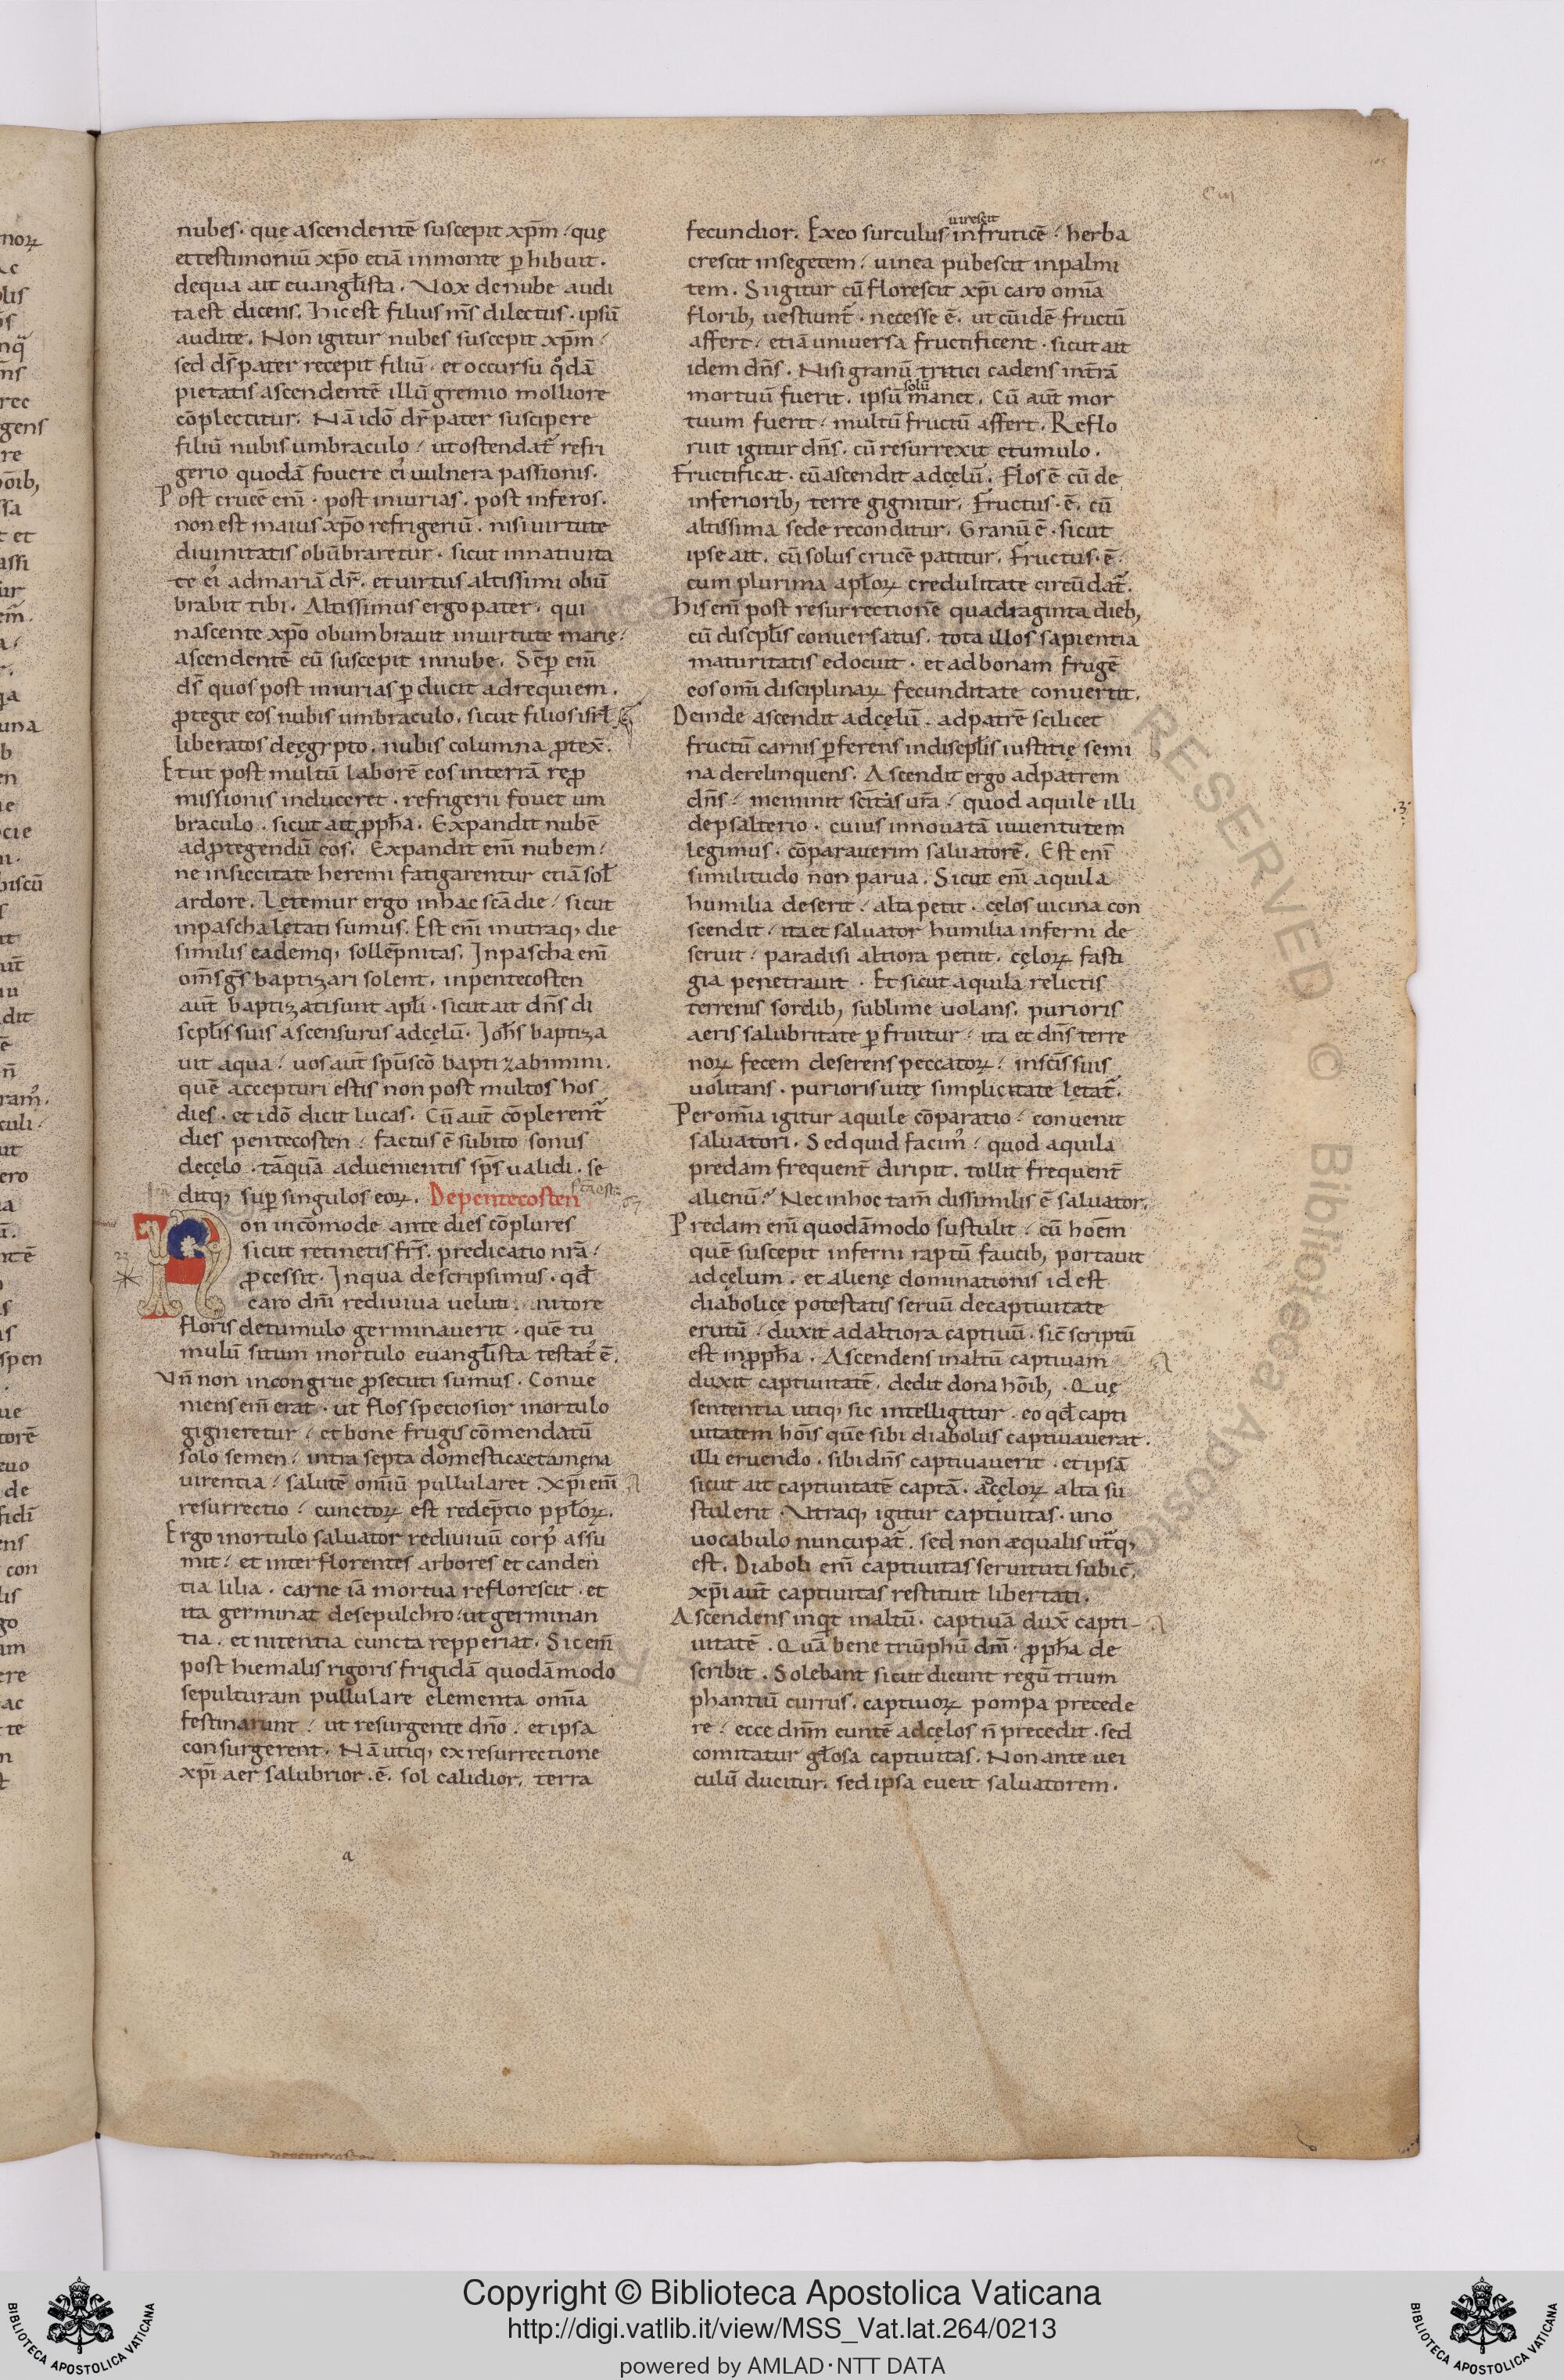 nubes. que ascendentē suscepit xp̄m / quę
et testimoniū xp̄o etiā in monte ꝑhibuit.
de qua ait euangl̄ista. Vox de nube audi
ta est dicens. Hic est filius m̄s dilectus. ipsū
audite. Non igitur nubes suscepit xp̄m /
sed d̄s pater recepit filiū / et occursu q̊dā
pietatis ascendentē illū gremio molliore
cōplectitur. Nā idō dr̄ pater suscipere
filiū nubis umbraculo / ut ostendat᷑ refri
gerio quodā fouere ei᷒ uulnera passionis.
Post crucē eni̅ . post iniurias . post inferos .
non est maius xp̄o refrigeriū . nisi uirtute
diuinitatis obūbraretur . sicut in natiuita
te ei᷒ ad mariā dr̄ . et uirtus altissimi obū
brabit tibi . Altissimus ergo pater . qui
nascente xp̄o obumbrauit in uirtute marię /
ascendentē eū suscepit in nube . Sēꝑ eni̅
d̄s quos post iniurias ꝑducit ad requiem .
ꝓtegit eos nubis umbraculo . sicut filios isrl̄
liberatos de ęgypto . nubis columna ꝓtex̄ .
Et ut post multū laborē eos in terrā reꝓ
missionis induceret . refrigerii fouet um
braculo . sicut ait ꝓph̄a . Expandit nubē
ad ꝓtegendū eos . Expandit eni̅ nubem /
ne in siccitate heremi fatigarentur etiā sol̄
ardore . Letemur ergo in hac sc̄a die / sicut
in pascha lętati sumus . Est eni̅ in utraq; die
similis eademq; sollēpnitas . In pascha eni̅
om̄s gn̄s baptizari solent . in pentecosten
aūt baptizati sunt apl̄i . sicut ait dn̄s di
scpl̄is suis ascensurus ad cęlū . Ioh̄s baptiza
uit aqua / uos aūt sp̄u sc̄o baptizabimini .
quē accepturi estis non post multos hos
dies . et idō dicit lucas . Cū aūt cōplerent᷑
dies pentecosten / factus ē subito sonus
de cęlo . tāquā aduenientis sp̄s ualidi . se
ditq; suꝑ singulos eoꝝ . De pentecosten
Non incōmode ante dies cōplures
sicut retinetis frs̄ . predicatio nr̄a /
ꝓcessit . In qua descripsimus . qd̄
caro dn̄i rediuiua ueluti nitore
floris de tumulo germinauerit . quē tu
mulū situm in ortulo euangl̄ista testat᷑ ē .
Vn̄ non incongrue ꝓsecuti sumus . Conue
niens eni̅ erat . ut flos speciosior in ortulo
gigneretur / et bone frugis cōmendatū
solo semen / intra septa domestica et amęna
uirentia / salutē om̄iū pullularet . Xp̄i eni̅
resurrectio / cunctoꝝ est redēptio ppl̄oꝝ .
Ergo in ortulo saluator rediuiuū corp᷒ assu
mit / et inter florentes arbores et canden
tia lilia . carne iā mortua reflorescit . et
ita germinat de sepulchro / ut germinan
tia . et nitentia cuncta repperiat . Sic eni̅
post hiemalis rigoris frigidā quodāmodo
sepulturam pullulare elementa om̄ia
festinarunt / ut resurgente dn̄o / et ipsa
consurgerent . Nā utiq; ex resurrectione
xp̄i aer salubrior . ē . sol calidior . terra
a
fecundior . Ex eo surculus uirescit in fruticē / herba
crescit in segetem / uinea pubescit in palmi
tem . Si igitur cū florescit xp̄i caro om̄ia
florib; uestiunt᷑ . necesse ē . ut cū idē fructū
affert / etiā uniuersa fructificent . sicut ait
idem dn̄s . Nisi granū tritici cadens in t̄rā
mortuū fuerit . ipsū solū manet . Cū aūt mor
tuum fuerit / multū fructū affert . Reflo
ruit igitur dn̄s . cū resurrexit e tumulo .
Fructificat . cū ascendit ad cęlū . Flos ē cū de
inferiorib; terre gignitur . Fructus . ē . cū
altissima sede reconditur . Granū ē . sicut
ipse ait . cū solus crucē patitur . Fructus . ē .
cum plurima apl̄oꝝ credulitate circūdat᷑ .
His eni̅ post resurrectionē quadraginta dieb;
cū discpl̄is conuersatus . tota illos sapientia
maturitatis edocuit . et ad bonam frugē
eos om̄i disciplinaꝝ fecunditate conuertit .
Deinde ascendit ad cęlū . ad patrē scilicet
fructū carnis ꝑferens in discpl̄is iustitię semi
na derelinquens . Ascendit ergo ad patrem
dn̄s / meminit sc̄itas ur̄a / quod aquile illi
de psalterio . cuius innouatā iuuentutem
legimus . cōparauerim saluatorē . Est eni̅
similitudo non parua . Sicut eni̅ aquila
humilia deserit / alta petit . cęlos uicina con
scendit / ita et saluator humilia inferni de
seruit / paradisi altiora petiit . cęloꝝ fasti
gia penetrauit . Et sicut aquila relictis
terrenis sordib; sublime uolans . purioris
aeris salubritate ꝑfruitur / ita et dn̄s terre
noꝝ fecem deserens peccatoꝝ / in sc̄is suis
uolitans . purioris uitę simplicitate lętat᷑ .
Per om̄ia igitur aquile cōparatio / conuenit
saluatori . Sed quid facim᷒ / quod aquila
predam frequent̄ diripit . tollit frequent̄
alienū ? Nec in hoc tam̄ dissimilis ē saluator .
Predam eni̅ quodāmodo sustulit / cū hoēm
quē suscepit inferni raptū faucib; portauit
ad cęlum . et alienę dominationis id est
diabolicę potestatis seruū de captiuitate
erutū / duxit ad altiora captiuū . sic̄ scriptū
est in ꝓph̄a . Ascendens in altū captiuam
duxit captiuitatē . dedit dona hōib; . Quę
sententia utiq; sic intelligitur . eo qd̄ capti
uitatem hōis quē sibi diabolus captiuauerat .
illi eruendo . sibi dn̄s captiuauerit . et ipsā
sicut ait captiuitatē captā . ad cęloꝝ alta su
stulerit . Vtraq; igitur captiuitas . uno
uocabulo nuncupat᷑ . sed non æqualis ut᷑q;
est . Diaboli eni̅ captiuitas seruituti subic̄ .
xp̄i aūt captiuitas restituit libertati .
Ascendens inqͥt in altū . captiuā dux̄ capti-
uitatē . Quā bene triūphū dn̄i . ꝓph̄a de
scribit . Solebant sicut dicunt regū trium
phantiū currus . captiuoꝝ pompa precede
re / ecce dn̄m euntē ad cęlos n̄ precedit . sed
comitatur gl̄osa captiuitas . Non ante uei
culū ducitur . sed ipsa eueit saluatorem .
Copyright © Biblioteca Apostolica Vaticana
http://digi.vatlib.it/view/MSS_Vat.lat.264/0213
powered by AMLAD·NTT DATA
BIBLIOTECA APOSTOLICA VATICANA
BIBLIOTECA APOSTOLICA VATICANA